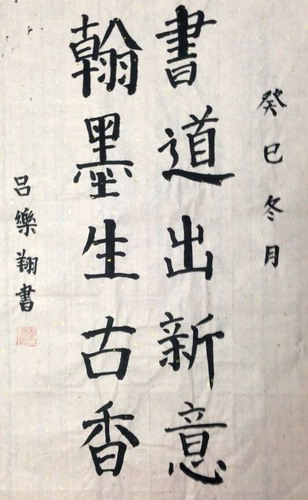 癸巳冬月
書道出新意
翰墨生古香
呂樂翔書